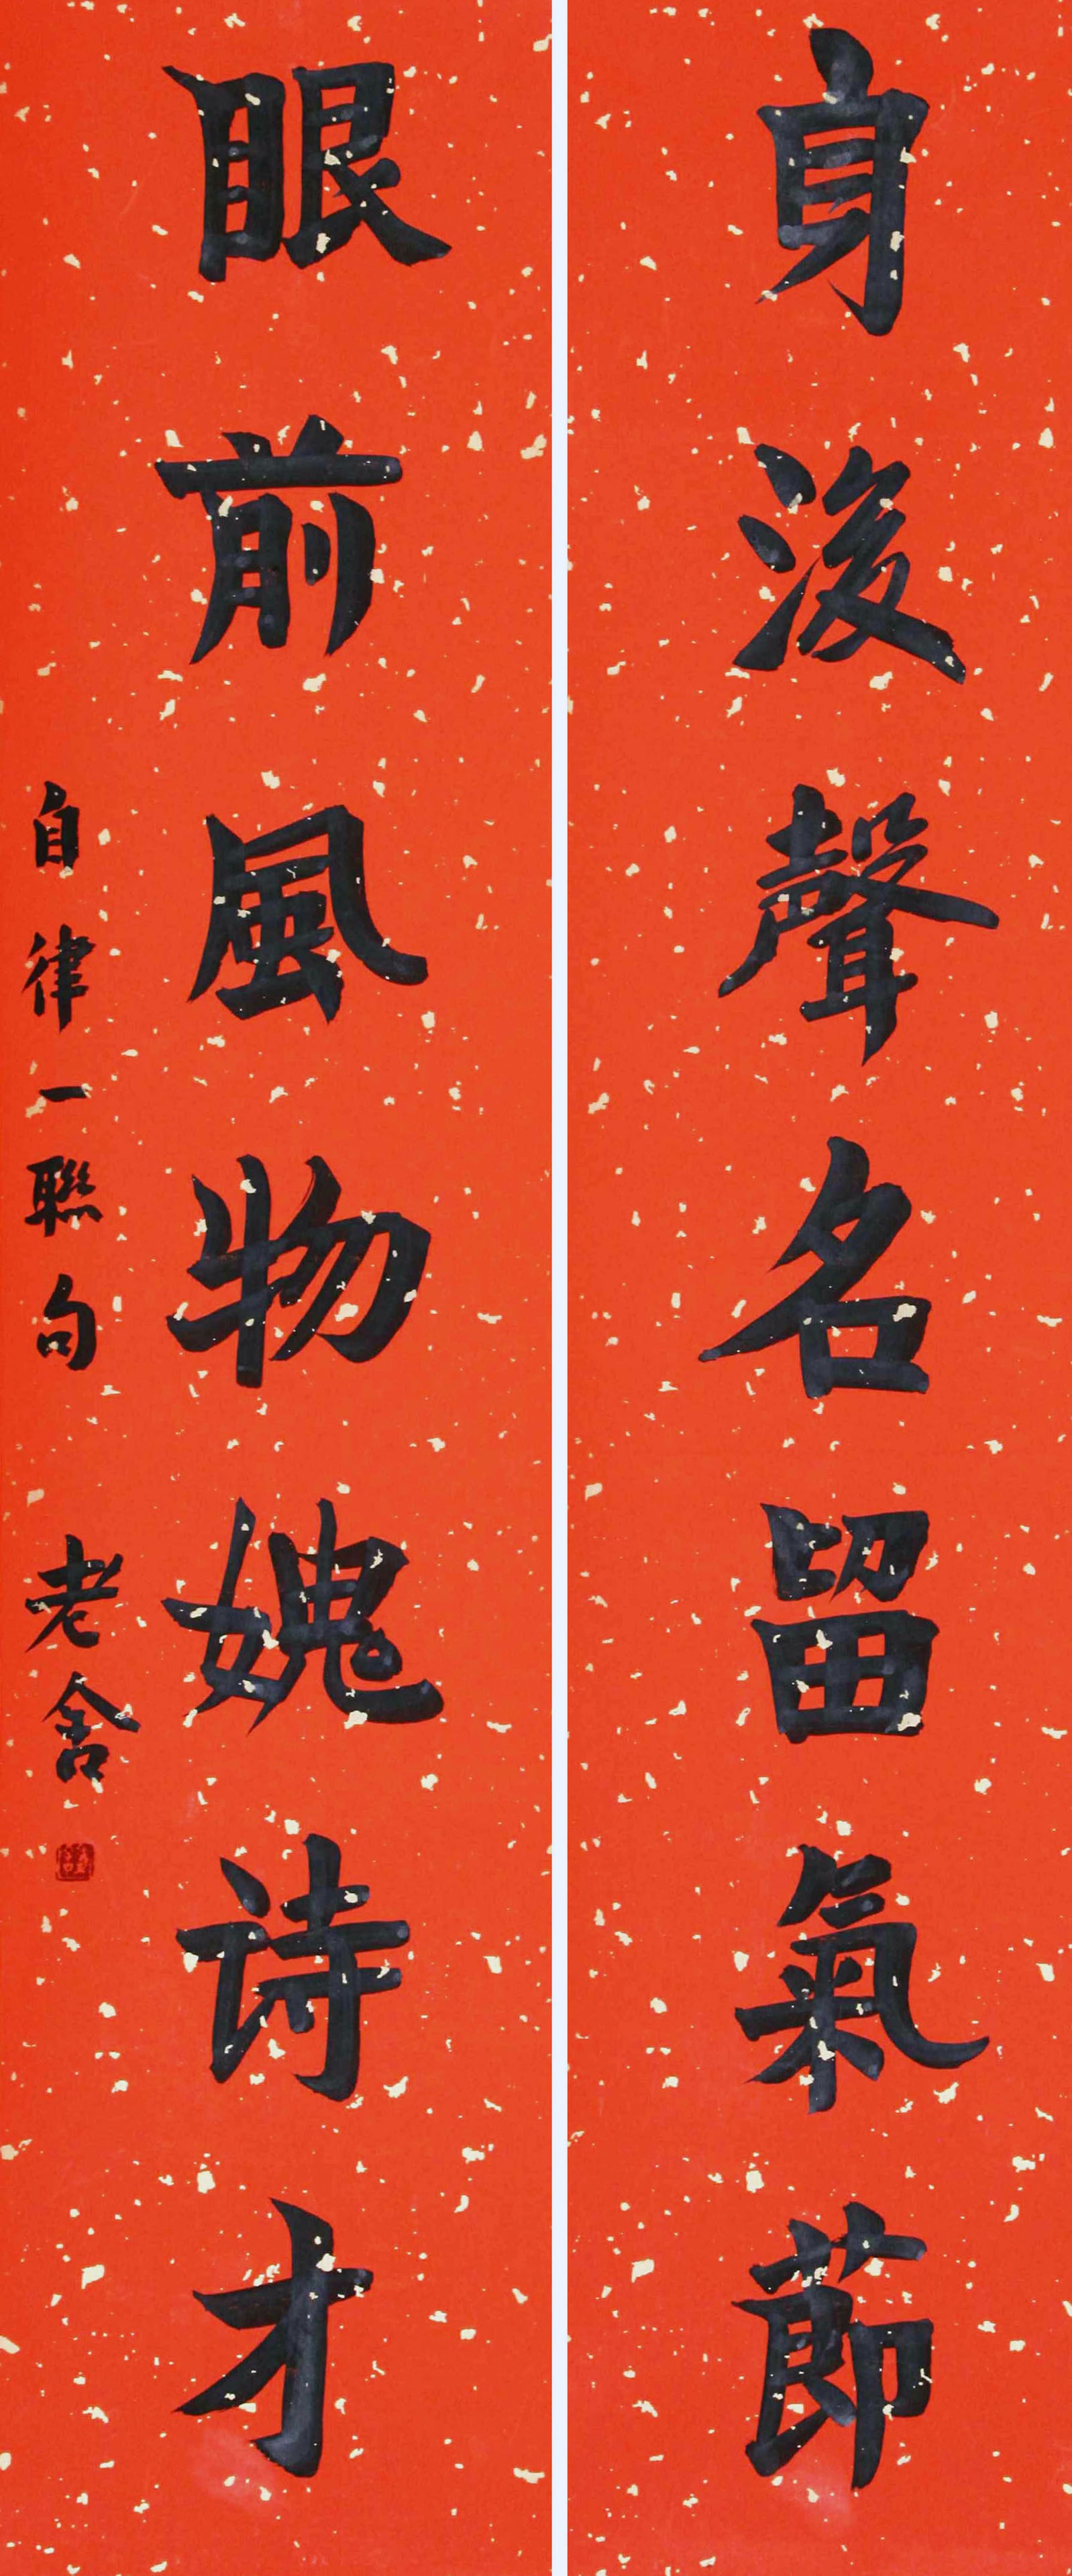 身後聲名留氣節
眼前風物媿诗才
自律一聯句 老舍